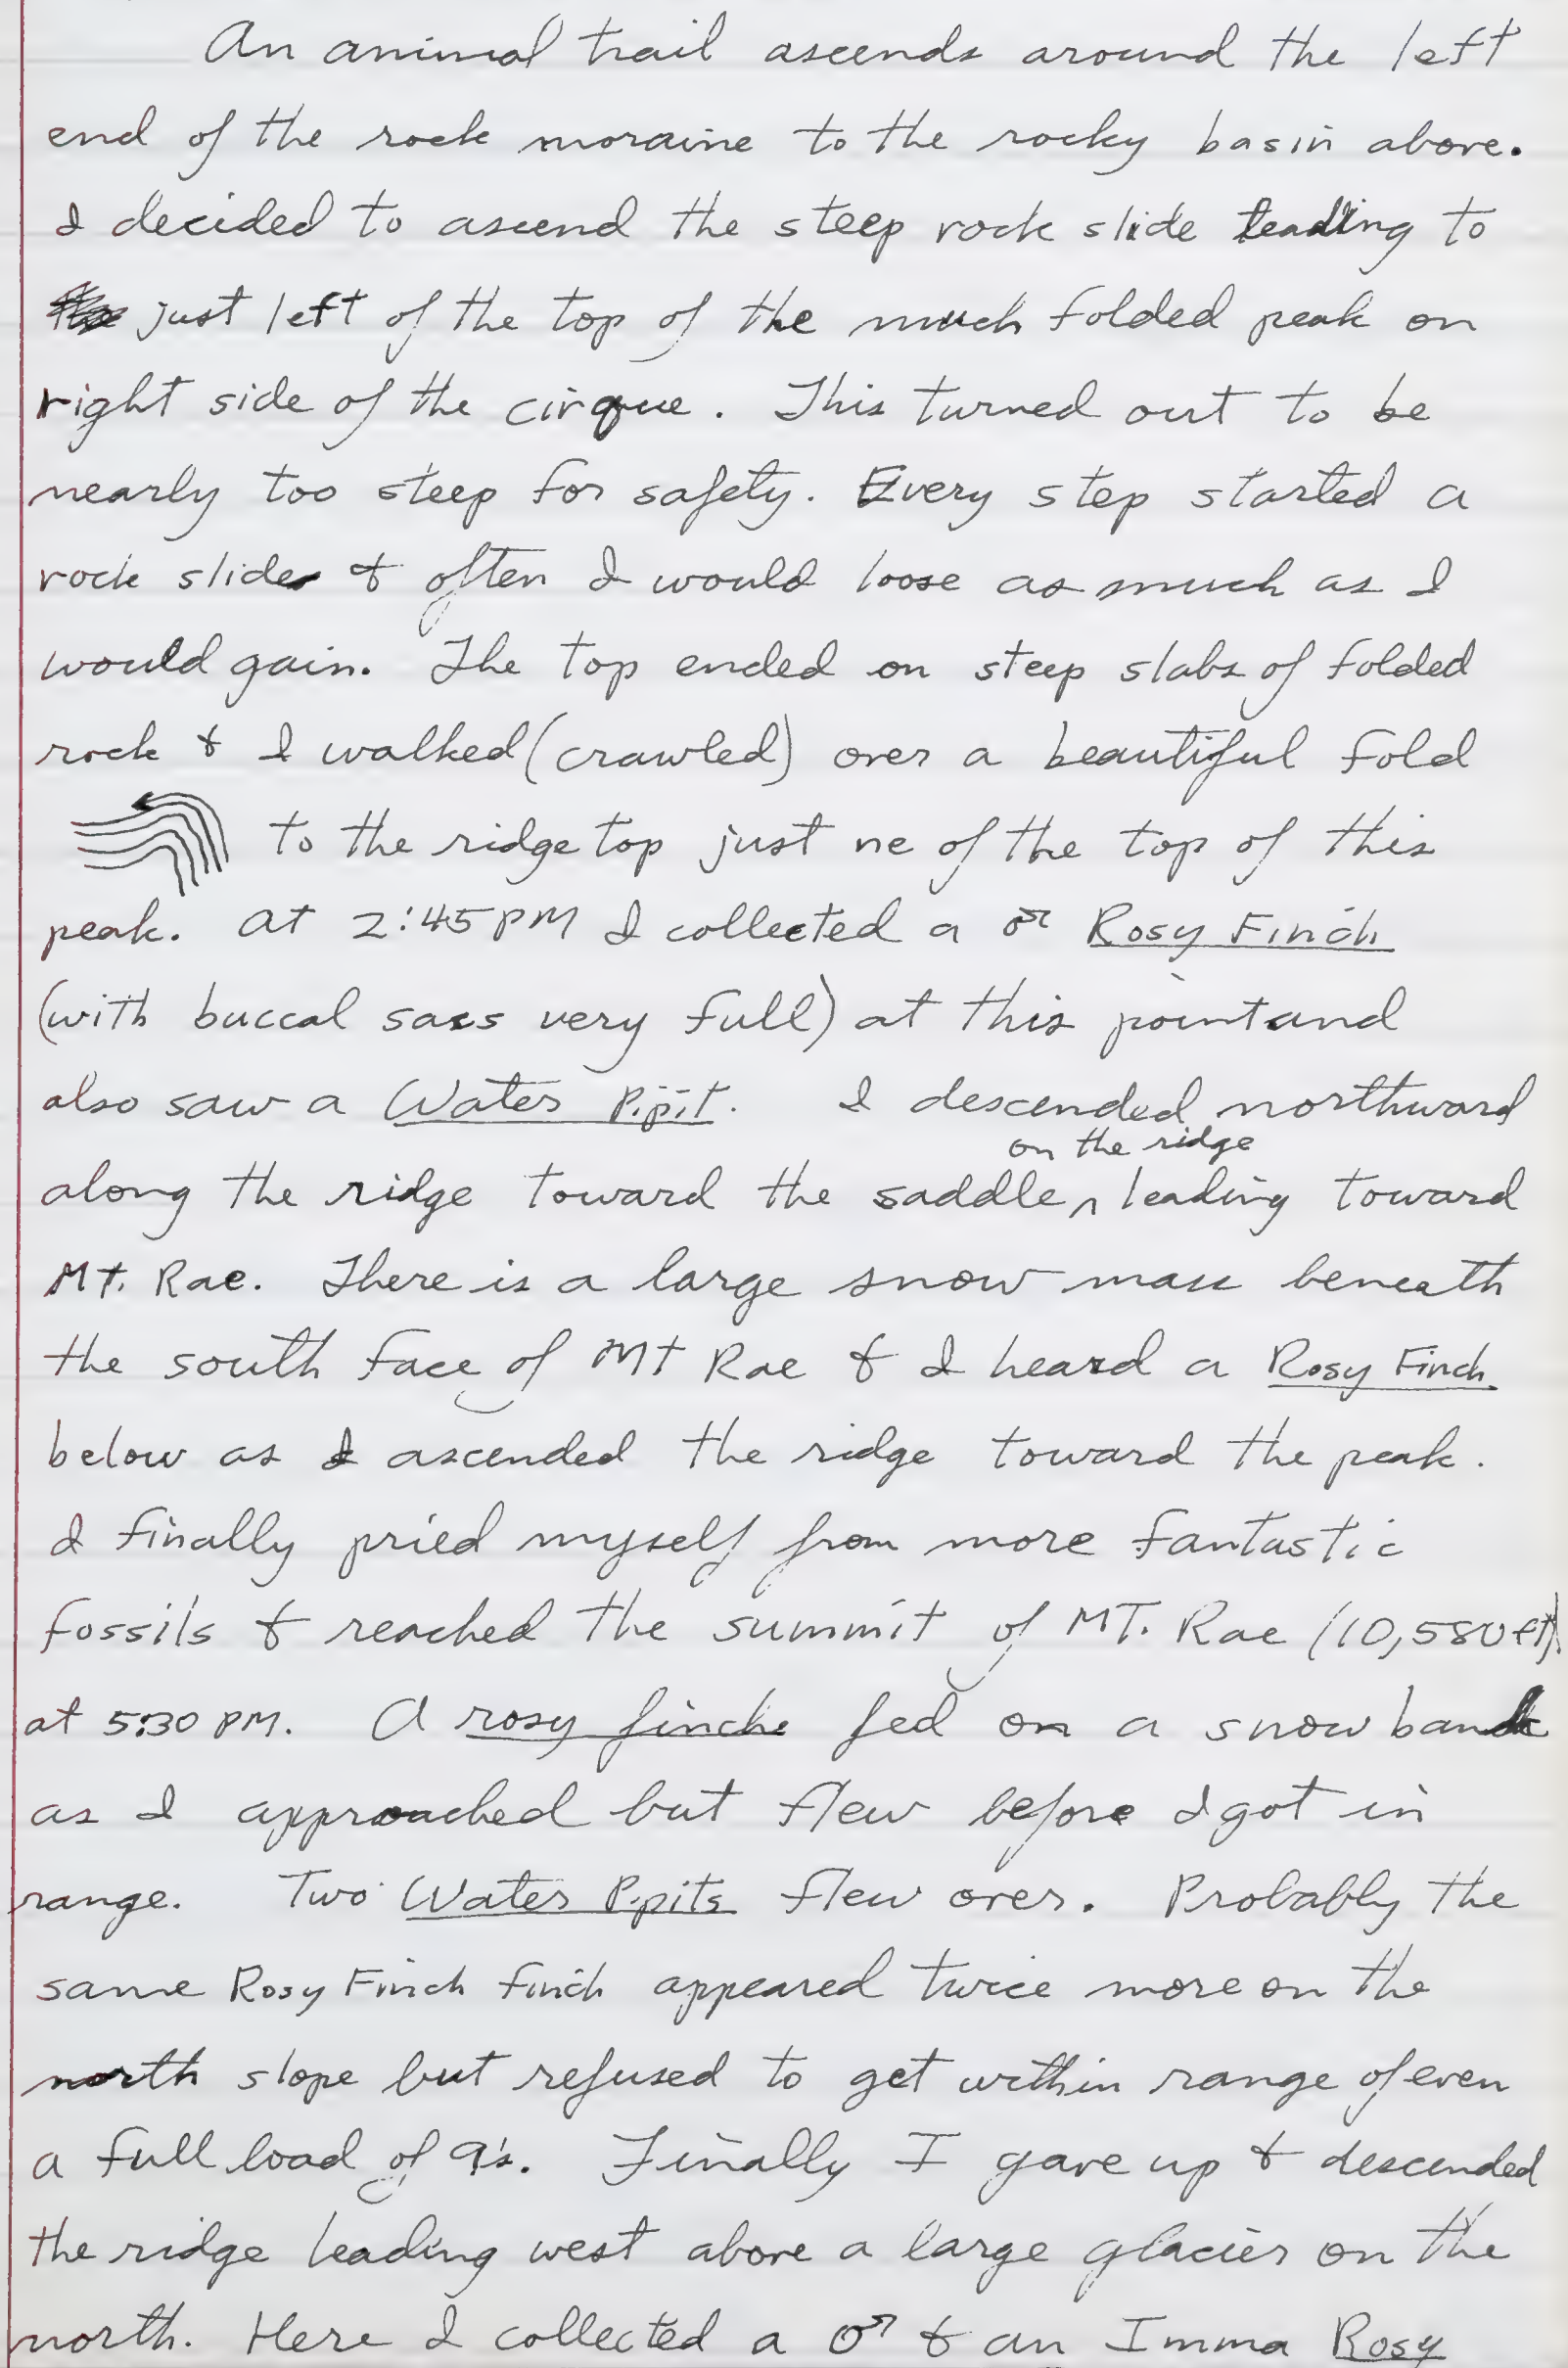 An animal trail ascends around the left
end of the rock moraine to the rocky basin above.
I decided to ascend the steep rock slide leading to
just left of the top of the much folded peak on
right side of the cirque. This turned out to be
nearly too steep for safety. Every step started a
rock slide & often I would loose as much as I
would gain. The top ended on steep slabs of folded
rock & I walked (crawled) over a beautiful fold
to the ridge top just ne of the top of this
peak. At 2:45 PM I collected a ♂ Rosy Finch
(with buccal sacs very full) at this point and
also saw a Water Pipit. I descended northward
on the ridge
along the ridge toward the saddle ^ leading toward
Mt. Rae. There is a large snow mass beneath
the south face of Mt Rae & I heard a Rosy Finch
below as I ascended the ridge toward the peak.
I finally pried myself from more fantastic
fossils & reached the summit of MT. Rae (10,580 ft)
at 5:30 PM. A rosy finche fed on a snow bank
as I approached but flew before I got in
range. Two Water Pipits flew over. Probably the
same Rosy Finch Finch appeared twice more on the
north slope but refused to get within range of even
a full load of 9's. Finally I gave up & descended
the ridge leading west above a large glacier on the
north. Here I collected a ♂ & an Imma Rosy